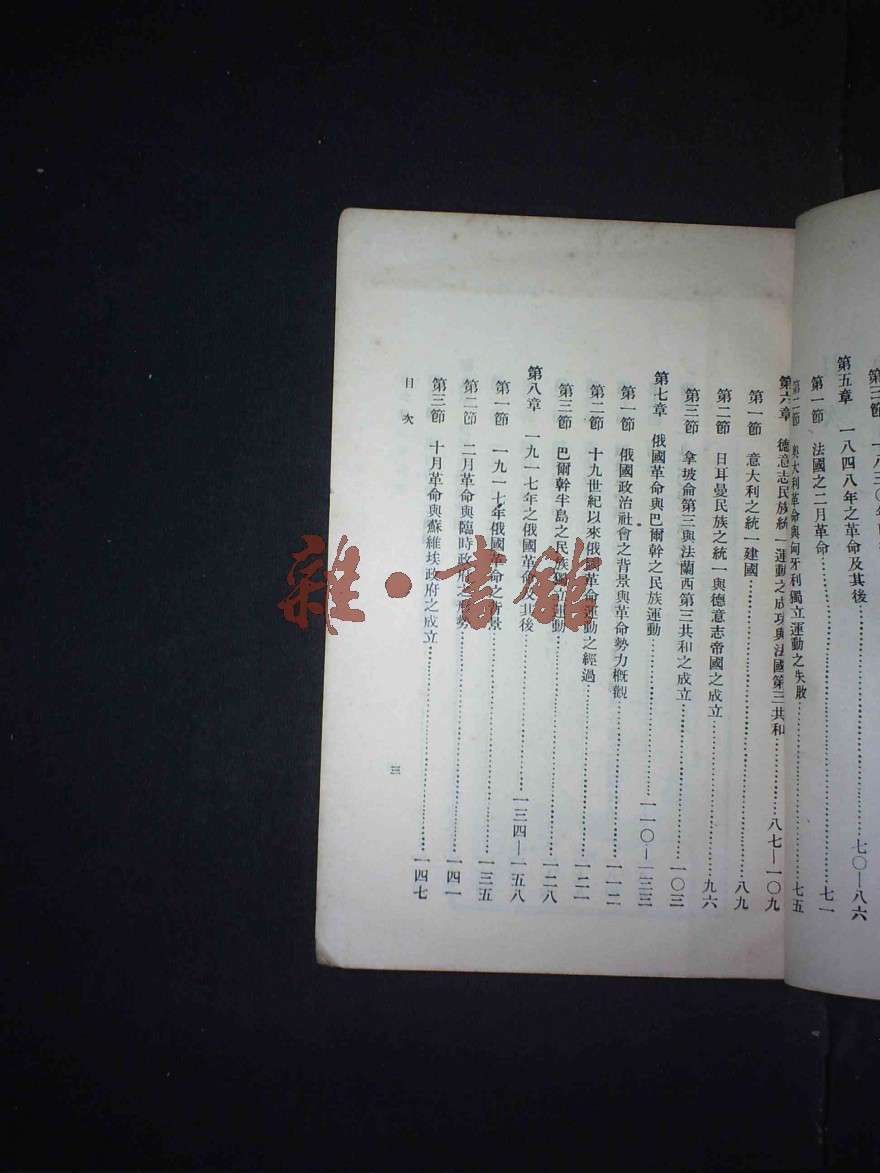 第五章 一八四八年之革命及其後 七〇—八六
第一節 法國之二月革命………七一
第二節 奧大利革命與匈牙利獨立運動之失敗………七五
第六章 德意志民族統一運動之成功與法國第三共和………八七—一〇九
第一節 意大利之統一建國………八九
第二節 日耳曼民族之統一與德意志帝國之成立………九六
第三節 拿坡侖第三與法蘭西第三共和之成立………一〇三
第七章 俄國革命與巴爾幹之民族運動………一一〇—一三三
第一節 俄國政治社會之背景與革命勢力概觀………一一二
第二節 十九世紀以來俄國革命運動之經過………一二一
第三節 巴爾幹半島之民族獨立運動………一二八
第八章 一九一七年之俄國革命及其後………一三四—一五八
第一節 一九一七年俄國革命之背景………一三五
第二節 二月革命與臨時政府之形勢………一四一
第三節 十月革命與蘇維埃政府之成立………一四七
目次
三
雜·書館